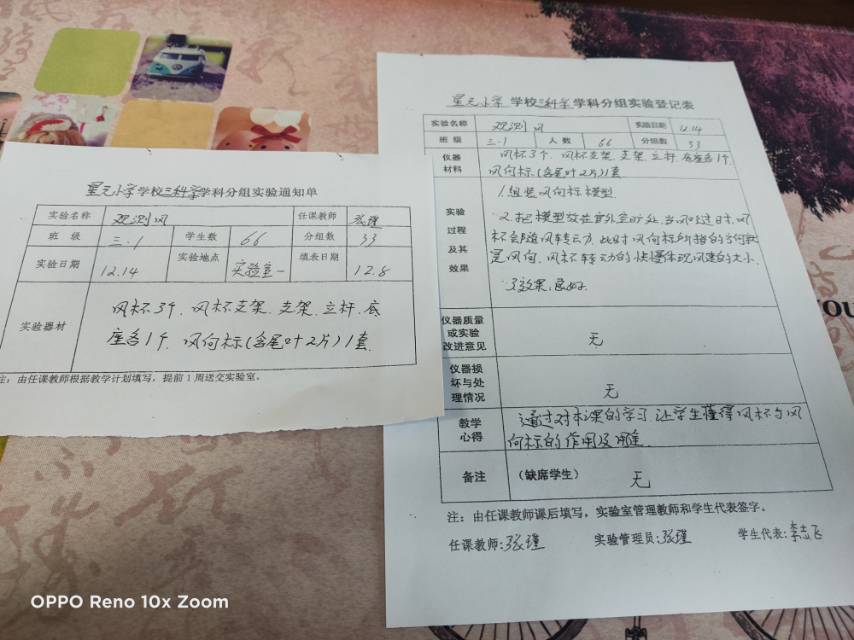 星元小学学校三科学学科分组实验通知单
实验名称 观测风 任课教师 张瑾
班 级 三.1 学生数 66 分组数 33
实验日期 12.14 实验地点 实验室一 填表日期 12.8
实验器材
风杯3个、风杯支架、支架、立杆、底
座各1个、风向标(含尾叶2片)1套
注:由任课教师根据教学计划填写,提前1周送交实验室。
星元小学 学校三科学学科分组实验登记表
实验名称 观测风 实验日期 12.14
班 级 三.1 人 数 66 分组数 33
仪器
材料
风杯3个、风杯支架、支架、立杆、底座各1个、
风向标(含尾叶2片)1套
实验
过程
及其
效果
1.组装风向标模型
2.把模型放在室外空旷处,当风吹过时,风
杯会随风转动,此时风向标所指的方向就
是风向,风杯转动的快慢体现风速的大小.
3.效果良好.
仪器质量
或实验
改进意见
无
仪器损
坏与处
理情况
无
教学
心得
通过对本课的学习 让学生懂得风杯与风
向标的作用及
备注 (缺席学生) 无
注:由任课教师课后填写,实验室管理教师和学生代表签字。
任课教师:张瑾 实验管理员:张瑾 学生代表:李志飞
OPPO Reno 10x Zoom